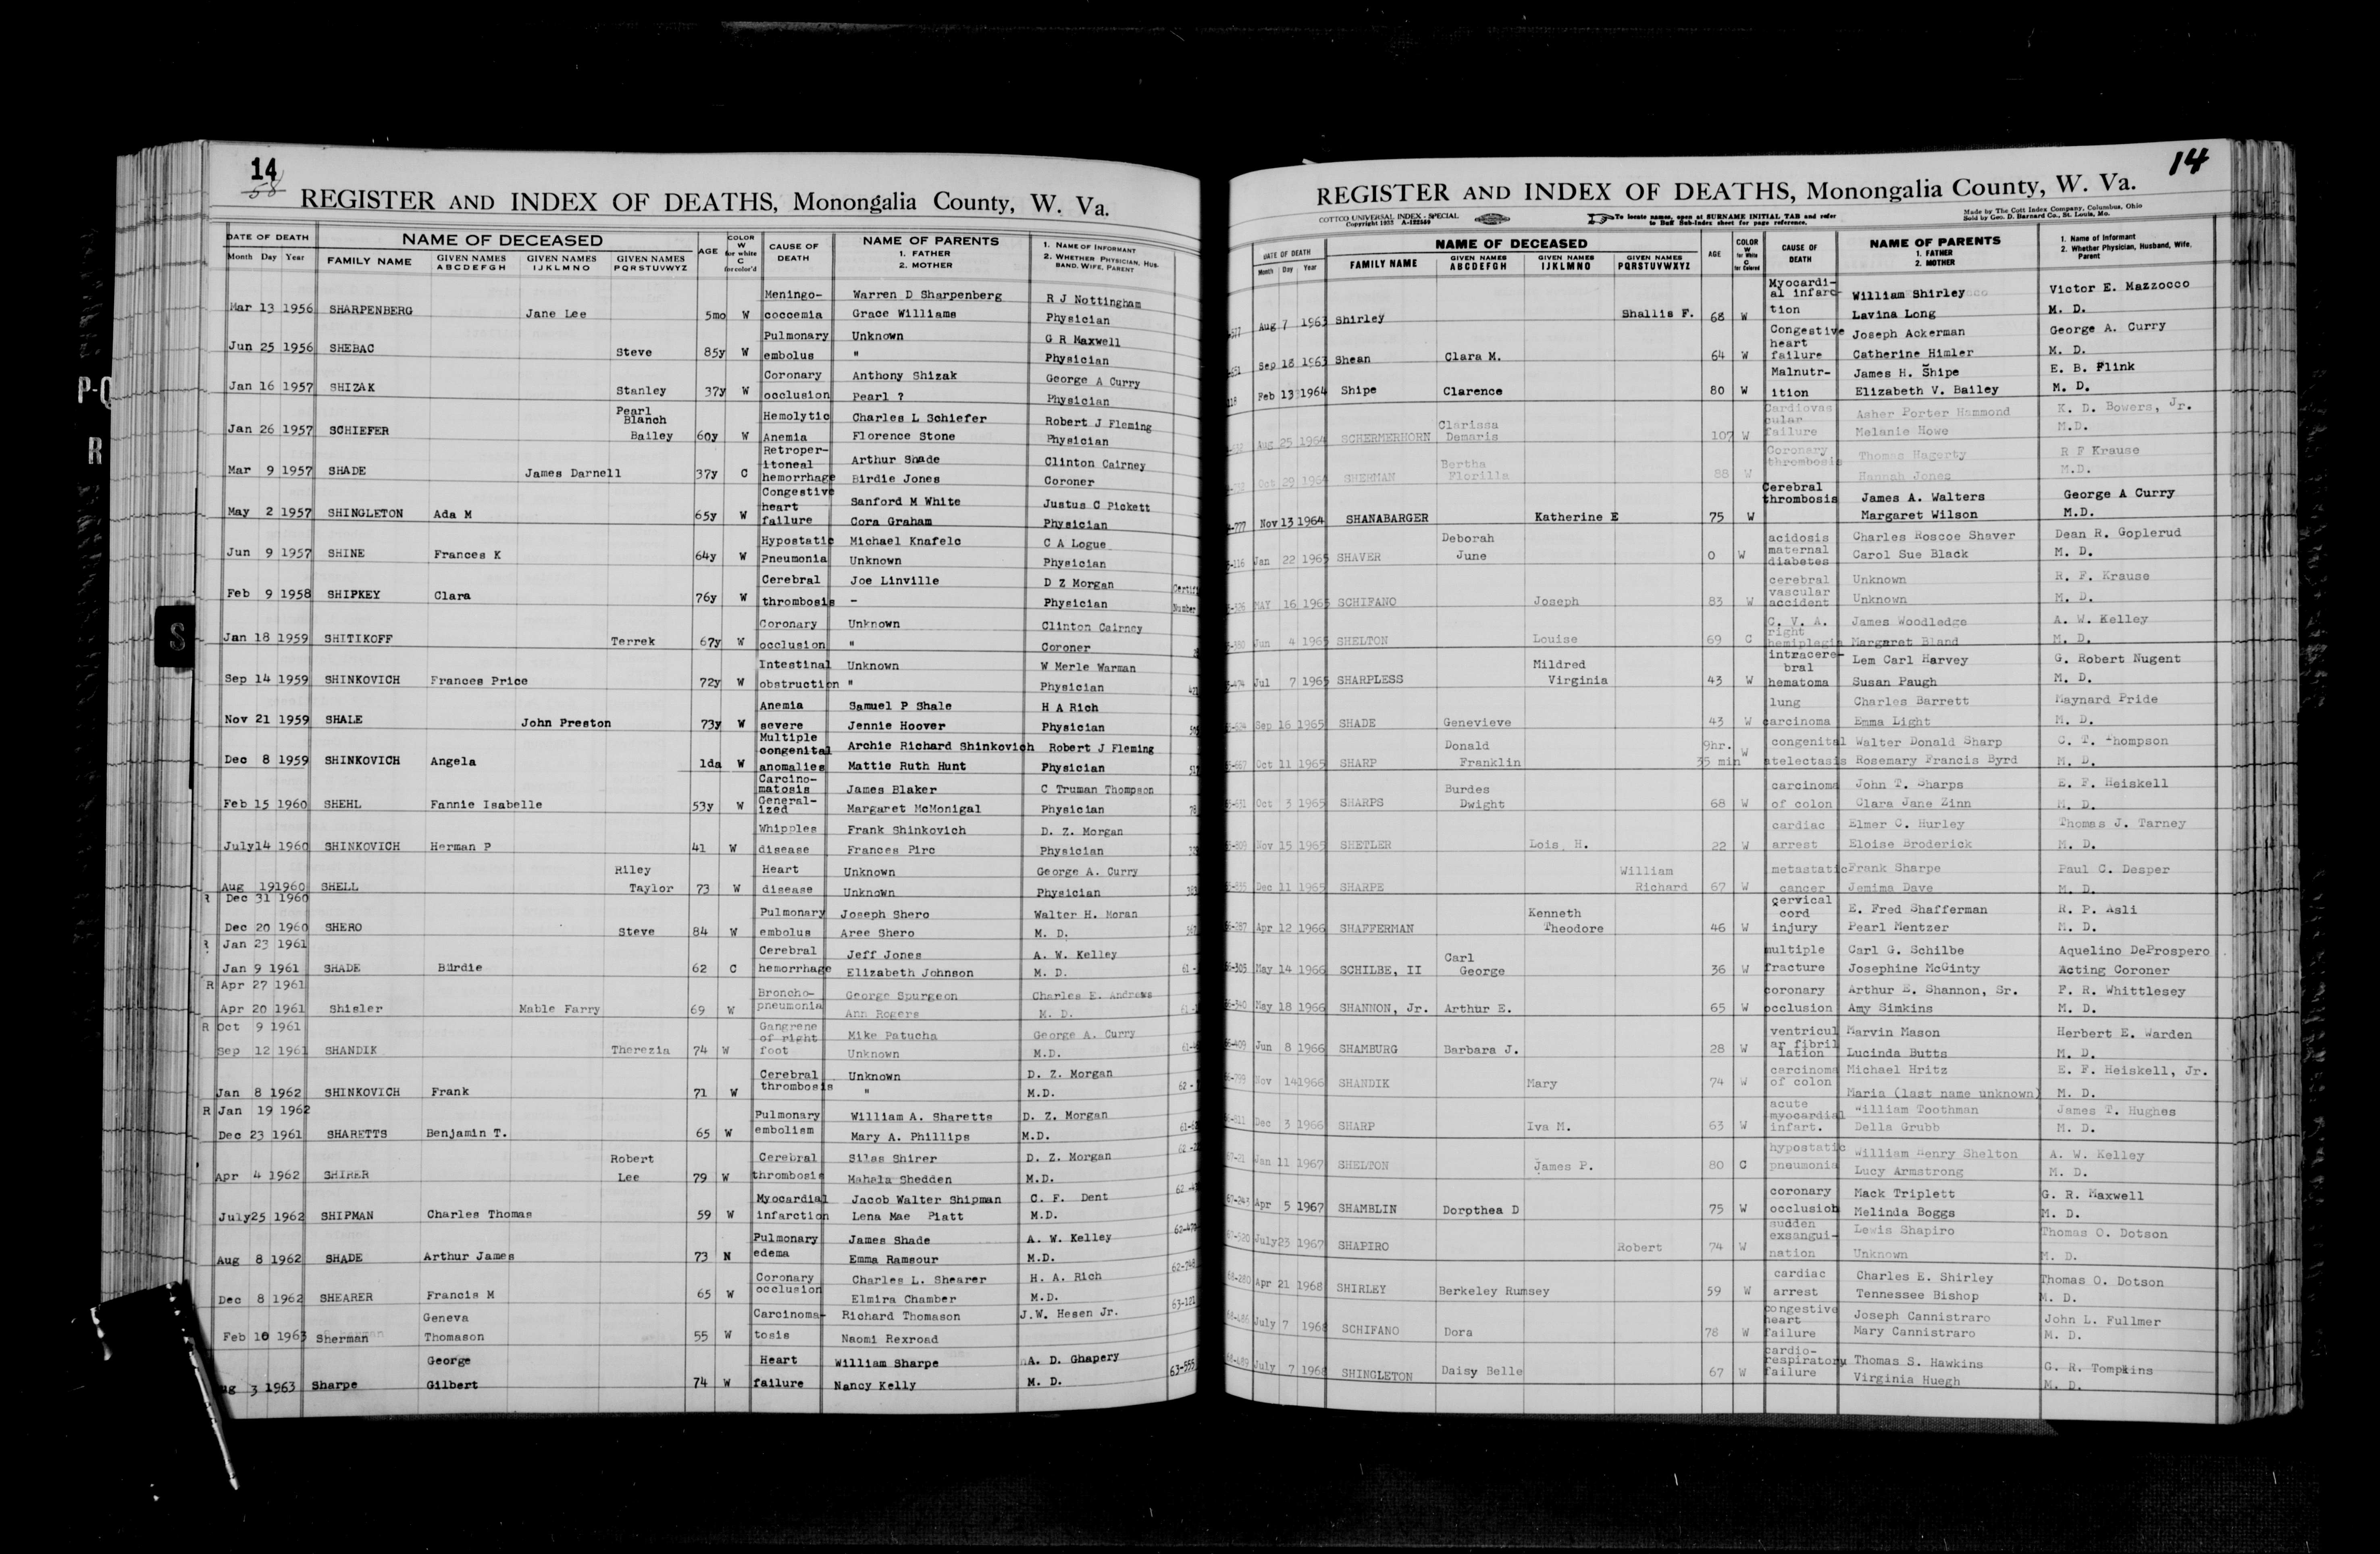 14
58
REGISTER AND INDEX OF DEATHS, Monongalia County, W. Va.
DATE OF DEATH Month Day Year NAME OF DECEASED FAMILY NAME GIVEN NAMES ABCDEFGH GIVEN NAMES IJKLMNO GIVEN NAMES PQRSTUVWYZ AGE COLOR W for white C for color'd CAUSE OF DEATH NAME OF PARENTS 1. FATHER 2. MOTHER 1. NAME OF INFORMANT 2. WHETHER PHYSICIAN, HUSBAND, WIFE, PARENT
Mar 13 1956 SHARPENBERG Jane Lee 5mo W Meningo-coccemia Warren D Sharpenberg Grace Williams R J Nottingham Physician
Jun 25 1956 SHEBAC Steve 85y W Pulmonary embolus Unknown " G R Maxwell Physician
Jan 16 1957 SHIZAK Stanley 37y W Coronary occlusion Anthony Shizak Pearl ? George A Curry Physician
Jan 26 1957 SCHIEFER Pearl Blanch Bailey 60y W Hemolytic Anemia Charles L Schiefer Florence Stone Robert J Fleming Physician
Mar 9 1957 SHADE James Darnell 37y C Retroper-itoneal hemorrhage Arthur Shade Birdie Jones Clinton Cairney Coroner
May 2 1957 SHINGLETON Ada M 65y W Congestive heart failure Sanford M White Cora Graham Justus C Pickett Physician
Jun 9 1957 SHINE Frances K 64y W Hypostatic Pneumonia Michael Knafelc Unknown C A Logue Physician
Feb 9 1958 SHIPKEY Clara 76y W Cerebral thrombosis Joe Linville - D Z Morgan Physician Certif Number
Jan 18 1959 SHITIKOFF Terrek 67y W Coronary occlusion Unknown " Clinton Cairney Coroner
Sep 14 1959 SHINKOVICH Frances Price 72y W Intestinal obstruction Unknown " W Merle Warman Physician
Nov 21 1959 SHALE John Preston 73y W Anemia severe Samuel P Shale Jennie Hoover H A Rich Physician
Dec 8 1959 SHINKOVICH Angela 1da W Multiple congenital anomalies Archie Richard Shinkovich Mattie Ruth Hunt Robert J Fleming Physician
Feb 15 1960 SHEHL Fannie Isabelle 53y W Carcino-matosis General-ized James Blaker Margaret McMonigal C Truman Thompson Physician
July14 1960 SHINKOVICH Herman P 41 W Whipples disease Frank Shinkovich Frances Pirc D. Z. Morgan Physician
Aug 191960 SHELL Riley Taylor 73 W Heart disease Unknown Unknown George A. Curry Physician
R Dec 31 1960
Dec 20 1960 SHERO Steve 84 W Pulmonary embolus Joseph Shero Aree Shero Walter H. Moran M. D.
R Jan 23 1961
Jan 9 1961 SHADE Birdie 62 C Cerebral hemorrhage Jeff Jones Elizabeth Johnson A. W. Kelley M. D. 61-
R Apr 27 1961
Apr 20 1961 Shisler Mable Farry 69 W Broncho-pneumonia George Spurgeon Ann Rogers Charles E. Andrews M. D.
R Oct 9 1961
Sep 12 1961 SHANDIK Therezia 74 W Gangrene of right foot Mike Patucha Unknown George A. Curry M.D.
Jan 8 1962 SHINKOVICH Frank 71 W Cerebral thrombosis Unknown " D. Z. Morgan M.D. 62-
R Jan 19 1962
Dec 23 1961 SHARETTS Benjamin T. 65 W Pulmonary embolism William A. Sharetts Mary A. Phillips D. Z. Morgan M.D.
Apr 4 1962 SHIRER Robert Lee 79 W Cerebral thrombosis Silas Shirer Mahala Shedden D. Z. Morgan M.D.
July25 1962 SHIPMAN Charles Thomas 59 W Myocardial infarction Jacob Walter Shipman Lena Mae Piatt C. F. Dent M.D.
Aug 8 1962 SHADE Arthur James 73 N Pulmonary edema James Shade Emma Ramsour A. W. Kelley M.D. 62-470
Dec 8 1962 SHEARER Francis M 65 W Coronary occlusion Charles L. Shearer Elmira Chamber H. A. Rich M.D. 62-748
Feb 10 1963 Sherman Geneva Thomason 55 W Carcinoma-tosis Richard Thomason Naomi Rexroad J.W. Hesen Jr. 63-121
ug 3 1963 Sharpe George Gilbert 74 W Heart failure William Sharpe Nancy Kelly A. D. Ghapery M. D. 63-555
P-Q
R
S
14
REGISTER AND INDEX OF DEATHS, Monongalia County, W. Va.
COTTCO UNIVERSAL INDEX - SPECIAL Copyright 1933 A-122549 To locate names, open at SURNAME INITIAL TAB and refer to Buff Sub-Index sheet for page reference. Made by The Cott Index Company, Columbus, Ohio Sold by Geo. D. Barnard Co., St. Louis, Mo.
DATE OF DEATH Month Day Year NAME OF DECEASED FAMILY NAME GIVEN NAMES ABCDEFGH GIVEN NAMES IJKLMNO GIVEN NAMES PQRSTUVWXYZ AGE COLOR W for White C for Colored CAUSE OF DEATH NAME OF PARENTS 1. FATHER 2. MOTHER 1. Name of Informant 2. Whether Physician, Husband, Wife, Parent
Aug 7 1963 Shirley Shallis F. 68 W Myocardi-al infarc-tion William Shirley Lavina Long Victor E. Mazzocco M. D.
Sep 18 1963 Shean Clara M. 64 W Congestive heart failure Joseph Ackerman Catherine Himler George A. Curry M. D.
Feb 13 1964 Shipe Clarence 80 W Malnutr-ition James H. Shipe Elizabeth V. Bailey E. B. Flink M. D.
Aug 25 1964 SCHERMERHORN Clarissa Demaris 107 W Cardiovas cular failure Asher Porter Hammond Melanie Howe K. D. Bowers, Jr. M.D.
Oct 29 1964 SHERMAN Bertha Florilla 88 W Coronary thrombosis Thomas Hagerty Hannah Jones R F Krause M.D.
-777 Nov 13 1964 SHANABARGER Katherine E 75 W Cerebral thrombosis James A. Walters Margaret Wilson George A Curry M.D.
-116 Jan 22 1965 SHAVER Deborah June 0 W acidosis maternal diabetes Charles Roscoe Shaver Carol Sue Black Dean R. Goplerud M. D.
MAY 16 1965 SCHIFANO Joseph 83 W cerebral vascular accident Unknown Unknown R. F. Krause M. D.
Jun 4 1965 SHELTON Louise 69 C C. V. A. right hemiplegia James Woodledge Margaret Bland A. W. Kelley M. D.
-474 Jul 7 1965 SHARPLESS Mildred Virginia 43 W intracere-bral hematoma Lem Carl Harvey Susan Paugh G. Robert Nugent M. D.
Sep 16 1965 SHADE Genevieve 43 W lung carcinoma Charles Barrett Emma Light Maynard Pride M. D.
-667 Oct 11 1965 SHARP Donald Franklin 9hr. 35 min W congenital atelectasis Walter Donald Sharp Rosemary Francis Byrd C. T. Thompson M. D.
Oct 3 1965 SHARPS Burdes Dwight 68 W carcinoma of colon John T. Sharps Clara Jane Zinn E. F. Heiskell M. D.
-809 Nov 15 1965 SHETLER Lois H. 22 W cardiac arrest Elmer C. Hurley Eloise Broderick Thomas J. Tarney M. D.
Dec 11 1965 SHARPE William Richard 67 W metastatic cancer Frank Sharpe Jemima Dave Paul C. Desper M. D.
66-287 Apr 12 1966 SHAFFERMAN Kenneth Theodore 46 W cervical cord injury E. Fred Shafferman Pearl Mentzer R. P. Asli M. D.
66-305 May 14 1966 SCHILBE, II Carl George 36 W multiple fracture Carl G. Schilbe Josephine McGinty Aquelino DeProspero Acting Coroner
66-340 May 18 1966 SHANNON, Jr. Arthur E. 65 W coronary occlusion Arthur E. Shannon, Sr. Amy Simkins F. R. Whittlesey M. D.
66-409 Jun 8 1966 SHAMBURG Barbara J. 28 W ventricul ar fibril lation Marvin Mason Lucinda Butts Herbert E. Warden M. D.
66-799 Nov 14 1966 SHANDIK Mary 74 W carcinoma of colon Michael Hritz Maria (last name unknown) E. F. Heiskell, Jr. M. D.
66-811 Dec 3 1966 SHARP Iva M. 63 W acute myocardial infart. William Toothman Della Grubb James T. Hughes M. D.
67-21 Jan 11 1967 SHELTON James P. 80 C hypostatic pneumonia William Henry Shelton Lucy Armstrong A. W. Kelley M. D.
67-243 Apr 5 1967 SHAMBLIN Dorothea D 75 W coronary occlusion Mack Triplett Melinda Boggs G. R. Maxwell M. D.
67-520 July23 1967 SHAPIRO Robert 74 W sudden exsangui-nation Lewis Shapiro Unknown Thomas O. Dotson M. D.
68-280 Apr 21 1968 SHIRLEY Berkeley Rumsey 59 W cardiac arrest Charles E. Shirley Tennessee Bishop Thomas O. Dotson M. D.
68-486 July 7 1968 SCHIFANO Dora 78 W congestive heart failure Joseph Cannistraro Mary Cannistraro John L. Fullmer M. D.
68-489 July 7 1968 SHINGLETON Daisy Belle 67 W cardio-respiratory failure Thomas S. Hawkins Virginia Huegh G. R. Tompkins M. D.